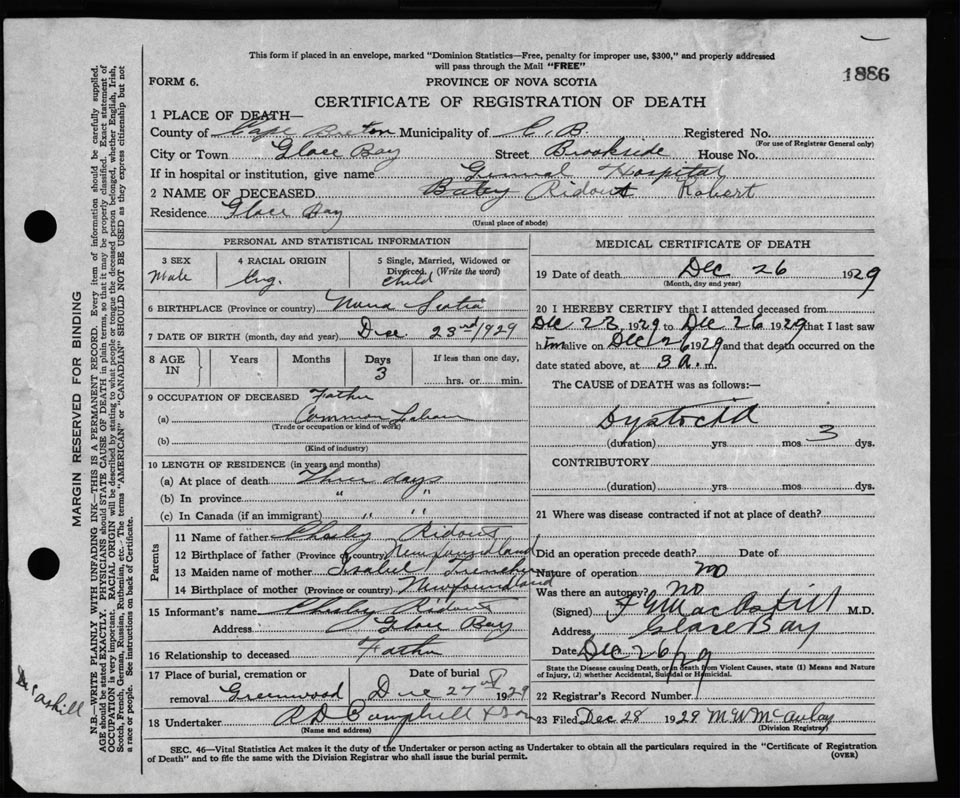 This form if placed in an envelope, marked "Dominion Statistics—Free, penalty for improper use, $300," and properly addressed
will pass through the Mail "FREE"
1886
FORM 6.
PROVINCE OF NOVA SCOTIA
CERTIFICATE OF REGISTRATION OF DEATH
1 PLACE OF DEATH—
County of Cape Breton Municipality of C. B. Registered No.
(For use of Registrar General only)
City or Town Glace Bay Street Brookside House No.
If in hospital or institution, give name General Hospital
2 NAME OF DECEASED Ridout Robert
Residence Glace Bay
(Usual place of abode)
PERSONAL AND STATISTICAL INFORMATION
3 SEX Male
4 RACIAL ORIGIN Eng.
5 Single, Married, Widowed or Divorced. (Write the word) Child
6 BIRTHPLACE (Province or country) Nova Scotia
7 DATE OF BIRTH (month, day and year) Dec. 23rd 1929
8 AGE IN Years Months Days 3 If less than one day, hrs. or min.
9 OCCUPATION OF DECEASED Father
(a) Common
(Trade or occupation or kind of work)
(b)
(Kind of industry)
10 LENGTH OF RESIDENCE (in years and months)
(a) At place of death Three days
(b) In province " "
(c) In Canada (if an immigrant) " "
Parents
11 Name of father Ridout
12 Birthplace of father (Province or country) Newfoundland
13 Maiden name of mother Isabel
14 Birthplace of mother (Province or country) Newfoundland
15 Informant's name Ridout
Address Glace Bay
16 Relationship to deceased Father
17 Place of burial, cremation or removal Greenwood Date of burial Dec 27 1929
18 Undertaker A D Campbell & Son
(Name and address)
MEDICAL CERTIFICATE OF DEATH
19 Date of death Dec 26 1929
(Month, day and year)
20 I HEREBY CERTIFY that I attended deceased from
Dec 23 1929 to Dec 26 1929 that I last saw
him alive on Dec 26 1929 and that death occurred on the
date stated above, at 3 a. m.
The CAUSE OF DEATH was as follows:—
Dystocia
(duration) yrs mos 3 dys.
CONTRIBUTORY
(duration) yrs mos dys.
21 Where was disease contracted if not at place of death?
Did an operation precede death? Date of
Nature of operation no
Was there an autopsy? No
(Signed) M.D.
Address Glace Bay
Date Dec 26/29
State the Disease causing Death, or in death from Violent Causes, state (1) Means and Nature
of Injury, (2) whether Accidental, Suicidal or Homicidal.
22 Registrar's Record Number
23 Filed Dec 28 1929 M. W. McAulay
(Division Registrar)
SEC. 46—Vital Statistics Act makes it the duty of the Undertaker or person acting as Undertaker to obtain all the particulars required in the "Certificate of Registration
of Death" and to file the same with the Division Registrar who shall issue the burial permit.
(OVER)
MARGIN RESERVED FOR BINDING
N.B.—WRITE PLAINLY WITH UNFADING INK—THIS IS A PERMANENT RECORD. Every item of information should be carefully supplied.
AGE should be stated EXACTLY. PHYSICIANS should STATE CAUSE OF DEATH in plain terms, so that it may be properly classified. Exact statement of
OCCUPATION is very important. RACIAL ORIGIN will be described by stating to what people or tongue the deceased person belonged, whether English, Irish,
Scotch, French, German, Russian, Ruthenian, etc. The terms "AMERICAN" or "CANADIAN" SHOULD NOT BE USED as they express citizenship but not
a race or people. See instructions on back of Certificate.